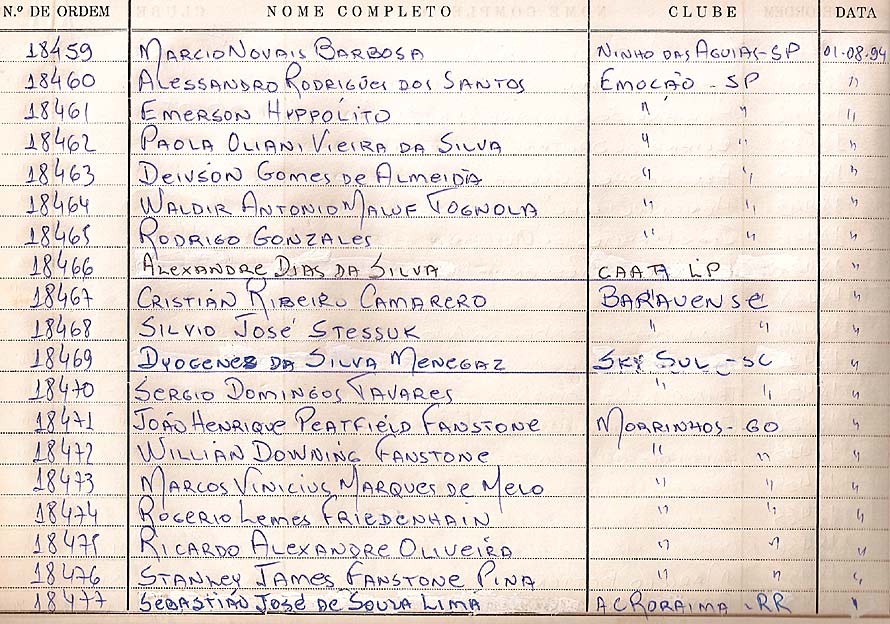 N.º DE ORDEM NOME COMPLETO CLUBE DATA
18459 MARCIO NOVAIS BARBOSA NINHO DAS AGUIAS-SP 01-08-94
18460 ALESSANDRO RODRIGUES DOS SANTOS EMOCÃO - SP "
18461 EMERSON HYPPÓLITO " " "
18462 PAOLA OLIANI VIEIRA DA SILVA " " "
18463 DEIVSON GOMES DE ALMEIDA " " "
18464 WALDIR ANTONIO MALUF TOGNOLA " " "
18465 RODRIGO GONZALES " " "
18466 ALEXANDRE DIAS DA SILVA CAATA "
18467 CRISTIÁN RIBEIRO CAMARERO BARAUENSE "
18468 SILVIO JOSÉ STESSUK " " "
18469 DYOGENES DA SILVA MENEGAZ SKY SUL - SC "
18470 SERGIO DOMINGOS TAVARES " " "
18471 JOÃO HENRIQUE PEATFIELD FANSTONE MORRINHOS - GO "
18472 WILLIAN DOWNING FANSTONE " " "
18473 MARCOS VINICIUS MARQUES DE MELO " " "
18474 ROGERIO LEMES FRIEDENHAIN " " "
18475 RICARDO ALEXANDRE OLIVEIRA " " "
18476 STANLEY JAMES FANSTONE PINA " " "
18477 SEBASTIÃO JOSÉ DE SOUZA LIMA AC RORAIMA - RR "